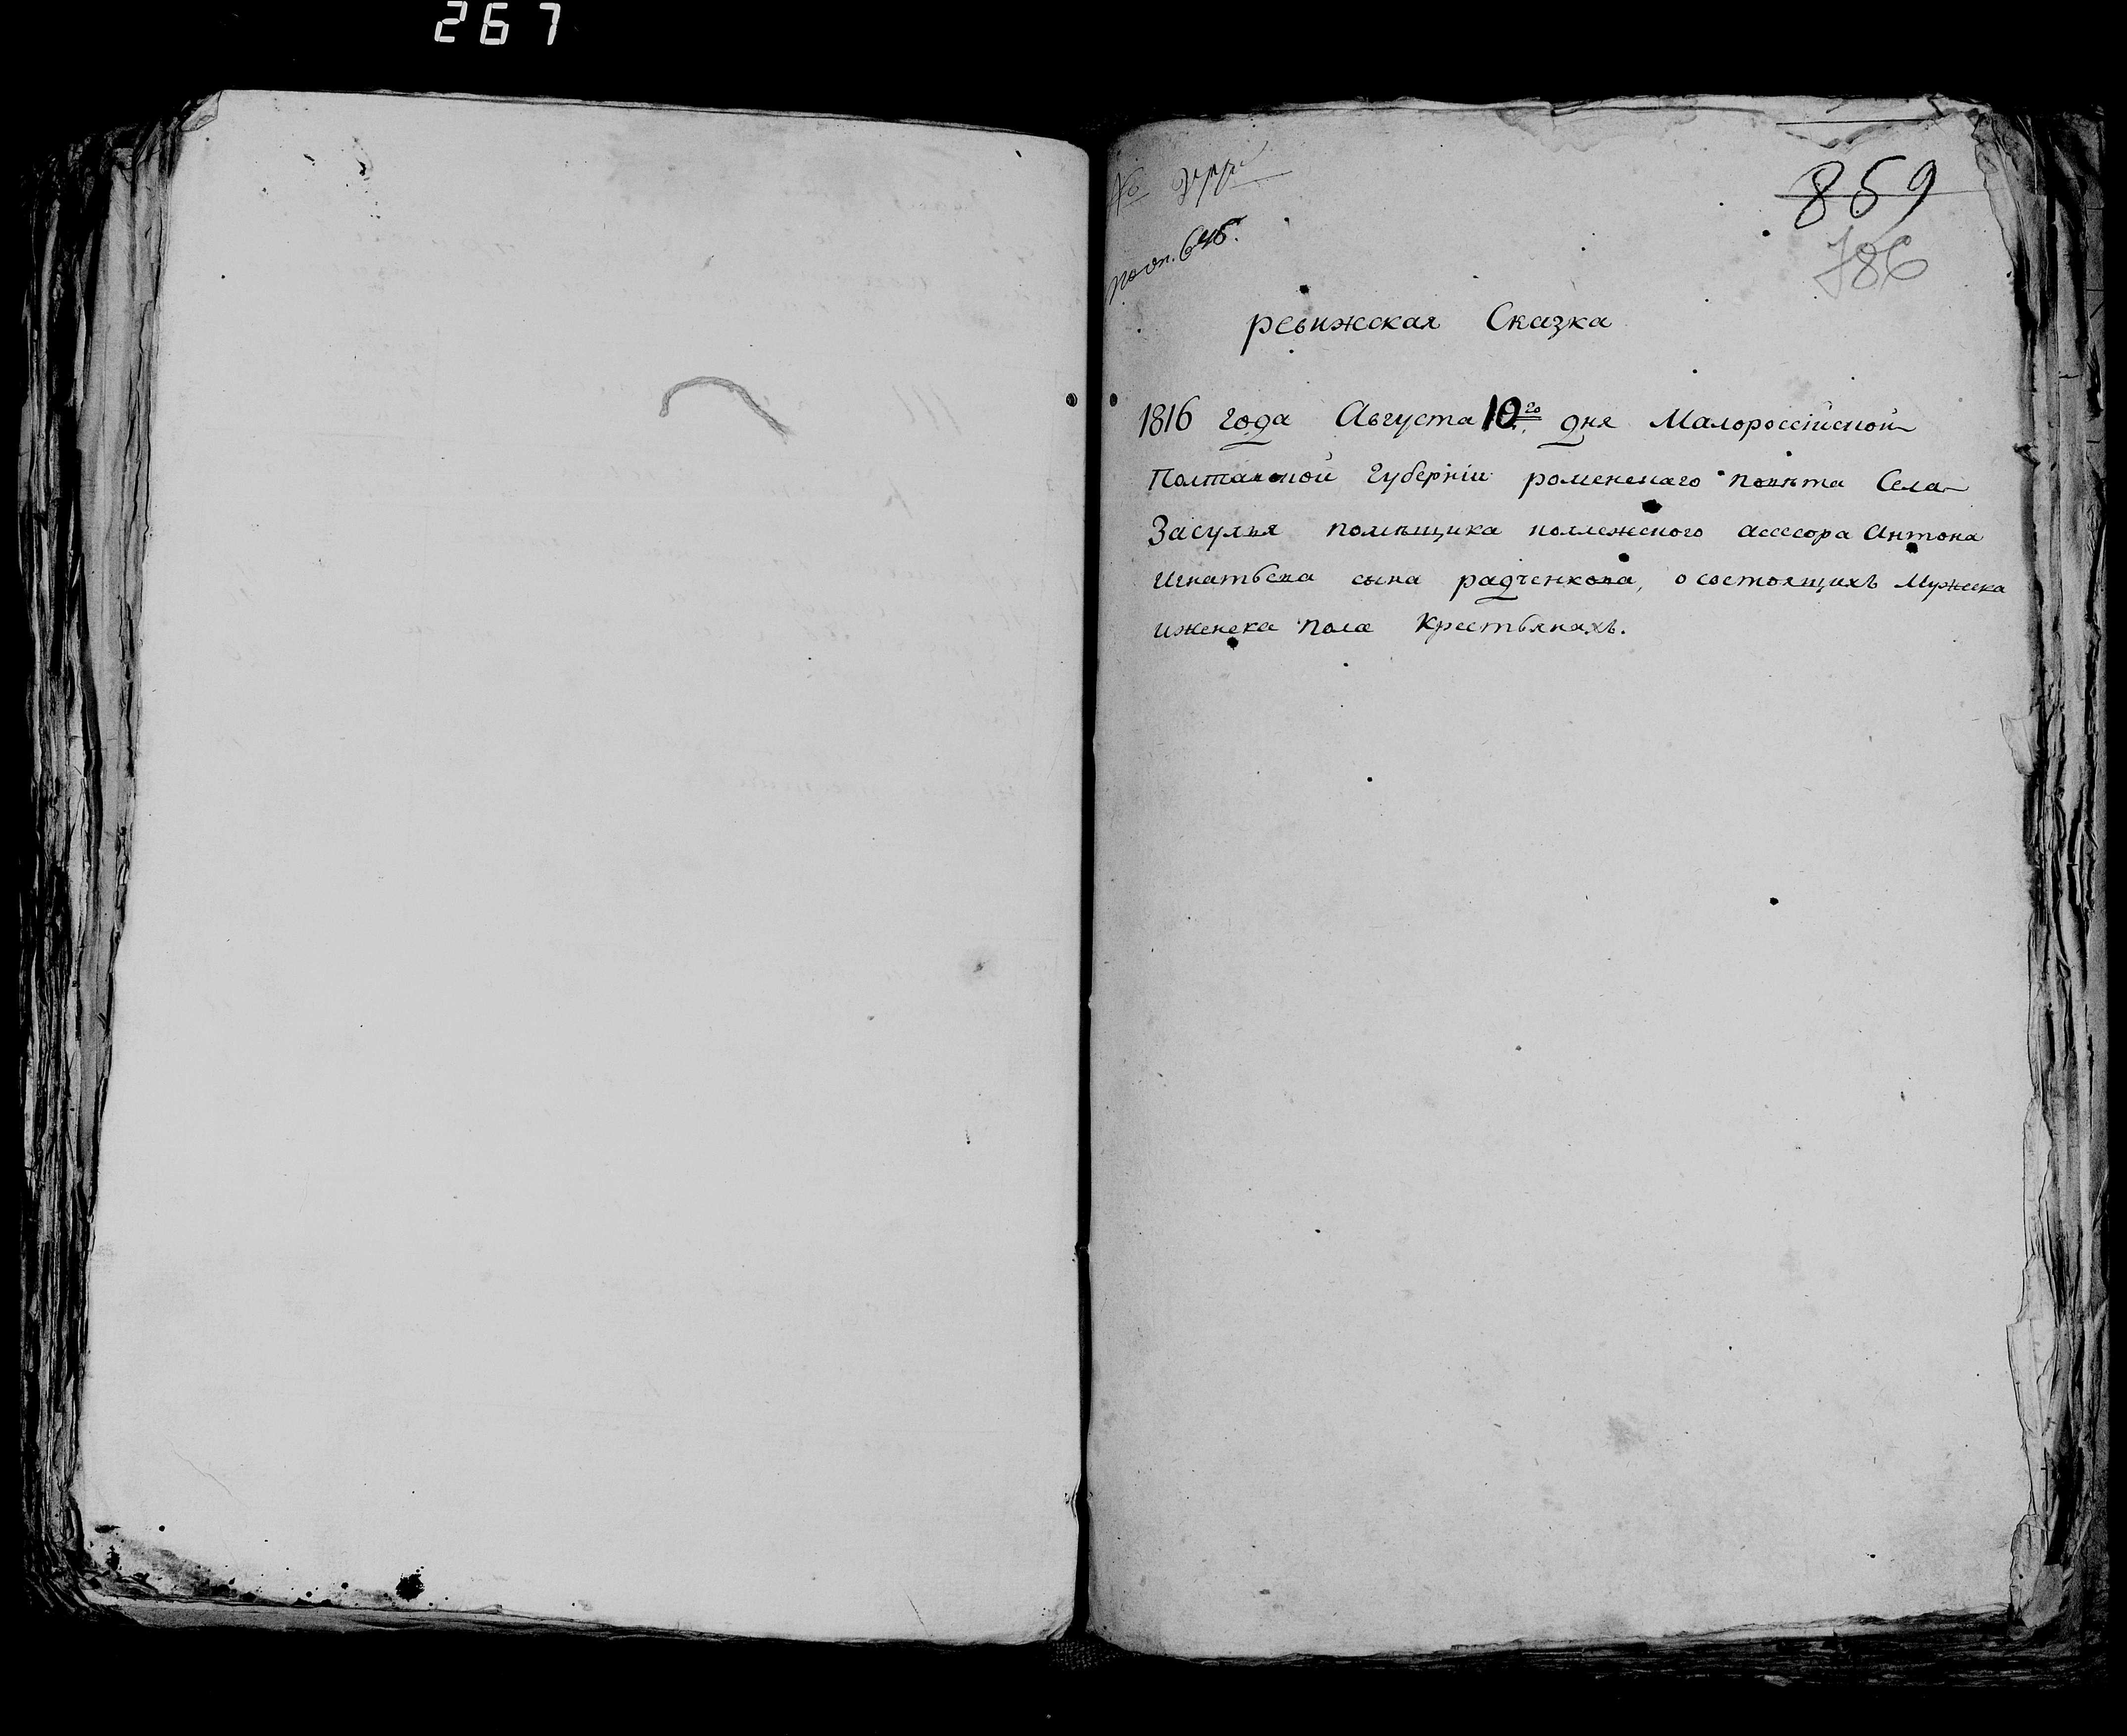 267
№
по оп. 645.
859
786
ревижская Сказка
1816 года Августа 10го дня Малороссійской
Полтавской Губерніи роменскаго повѣта Села
Засулья помѣщика коллежского асессора Антона
Игнатьева сына радченкова, о состоящихъ Мужеска
иженска пола Крестьянахъ.